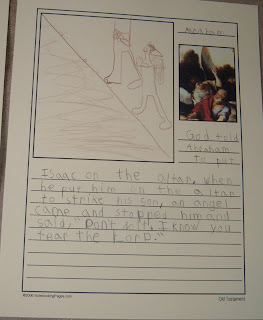 Abraham
God told
Abraham
to put
Isaac on the altar, when
he put him on the altar
to strike his son, an angel
came and stopped him and
said, "Don't do it, I know you
fear the LORD."
©2006 NotebookingPages.com
Old Testament